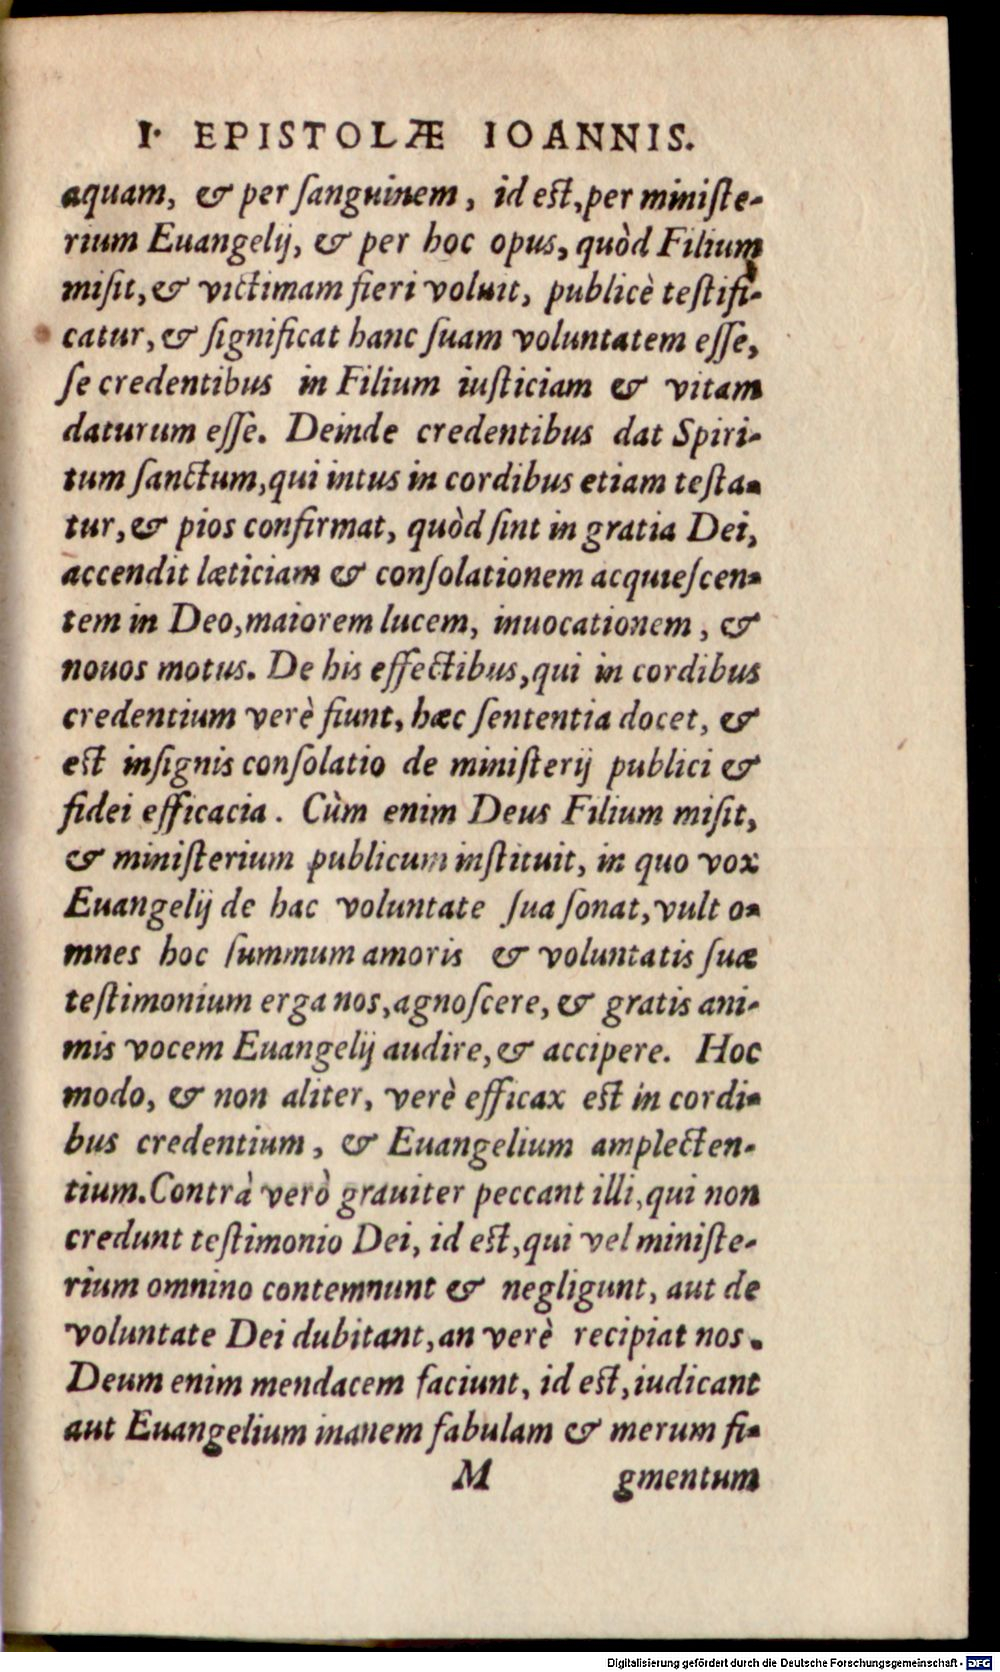 I. EPISTOLÆ IOANNIS.
aquam, & per ſanguinem, id est, per miniſte-
rium Euangelij, & per hoc opus, quòd Filium
miſit, & victimam fieri voluit, publicè teſtifi-
catur, & ſignificat hanc ſuam voluntatem eſſe,
ſe credentibus in Filium iuſticiam & vitam
daturum eſſe. Deinde credentibus dat Spiri-
tum ſanctum, qui intus in cordibus etiam teſta-
tur, & pios confirmat, quòd ſint in gratia Dei,
accendit læticiam & conſolationem acquieſcen-
tem in Deo, maiorem lucem, inuocationem, &
nouos motus. De his effectibus, qui in cordibus
credentium verè fiunt, hæc ſententia docet, &
est inſignis conſolatio de miniſterij publici &
fidei efficacia. Cùm enim Deus Filium miſit,
& miniſterium publicum inſtituit, in quo vox
Euangelij de hac voluntate ſua ſonat, vult o-
mnes hoc ſummum amoris & voluntatis ſuæ
teſtimonium erga nos, agnoſcere, & gratis ani-
mis vocem Euangelij audire, & accipere. Hoc
modo, & non aliter, verè efficax est in cordi-
bus credentium, & Euangelium amplecten-
tium. Contrà verò grauiter peccant illi, qui non
credunt teſtimonio Dei, id est, qui vel miniſte-
rium omnino contemnunt & negligunt, aut de
voluntate Dei dubitant, an verè recipiat nos.
Deum enim mendacem faciunt, id est, iudicant
aut Euangelium inanem fabulam & merum fi-
M gmentum
Digitalisierung gefördert durch die Deutsche Forschungsgemeinschaft - DFG